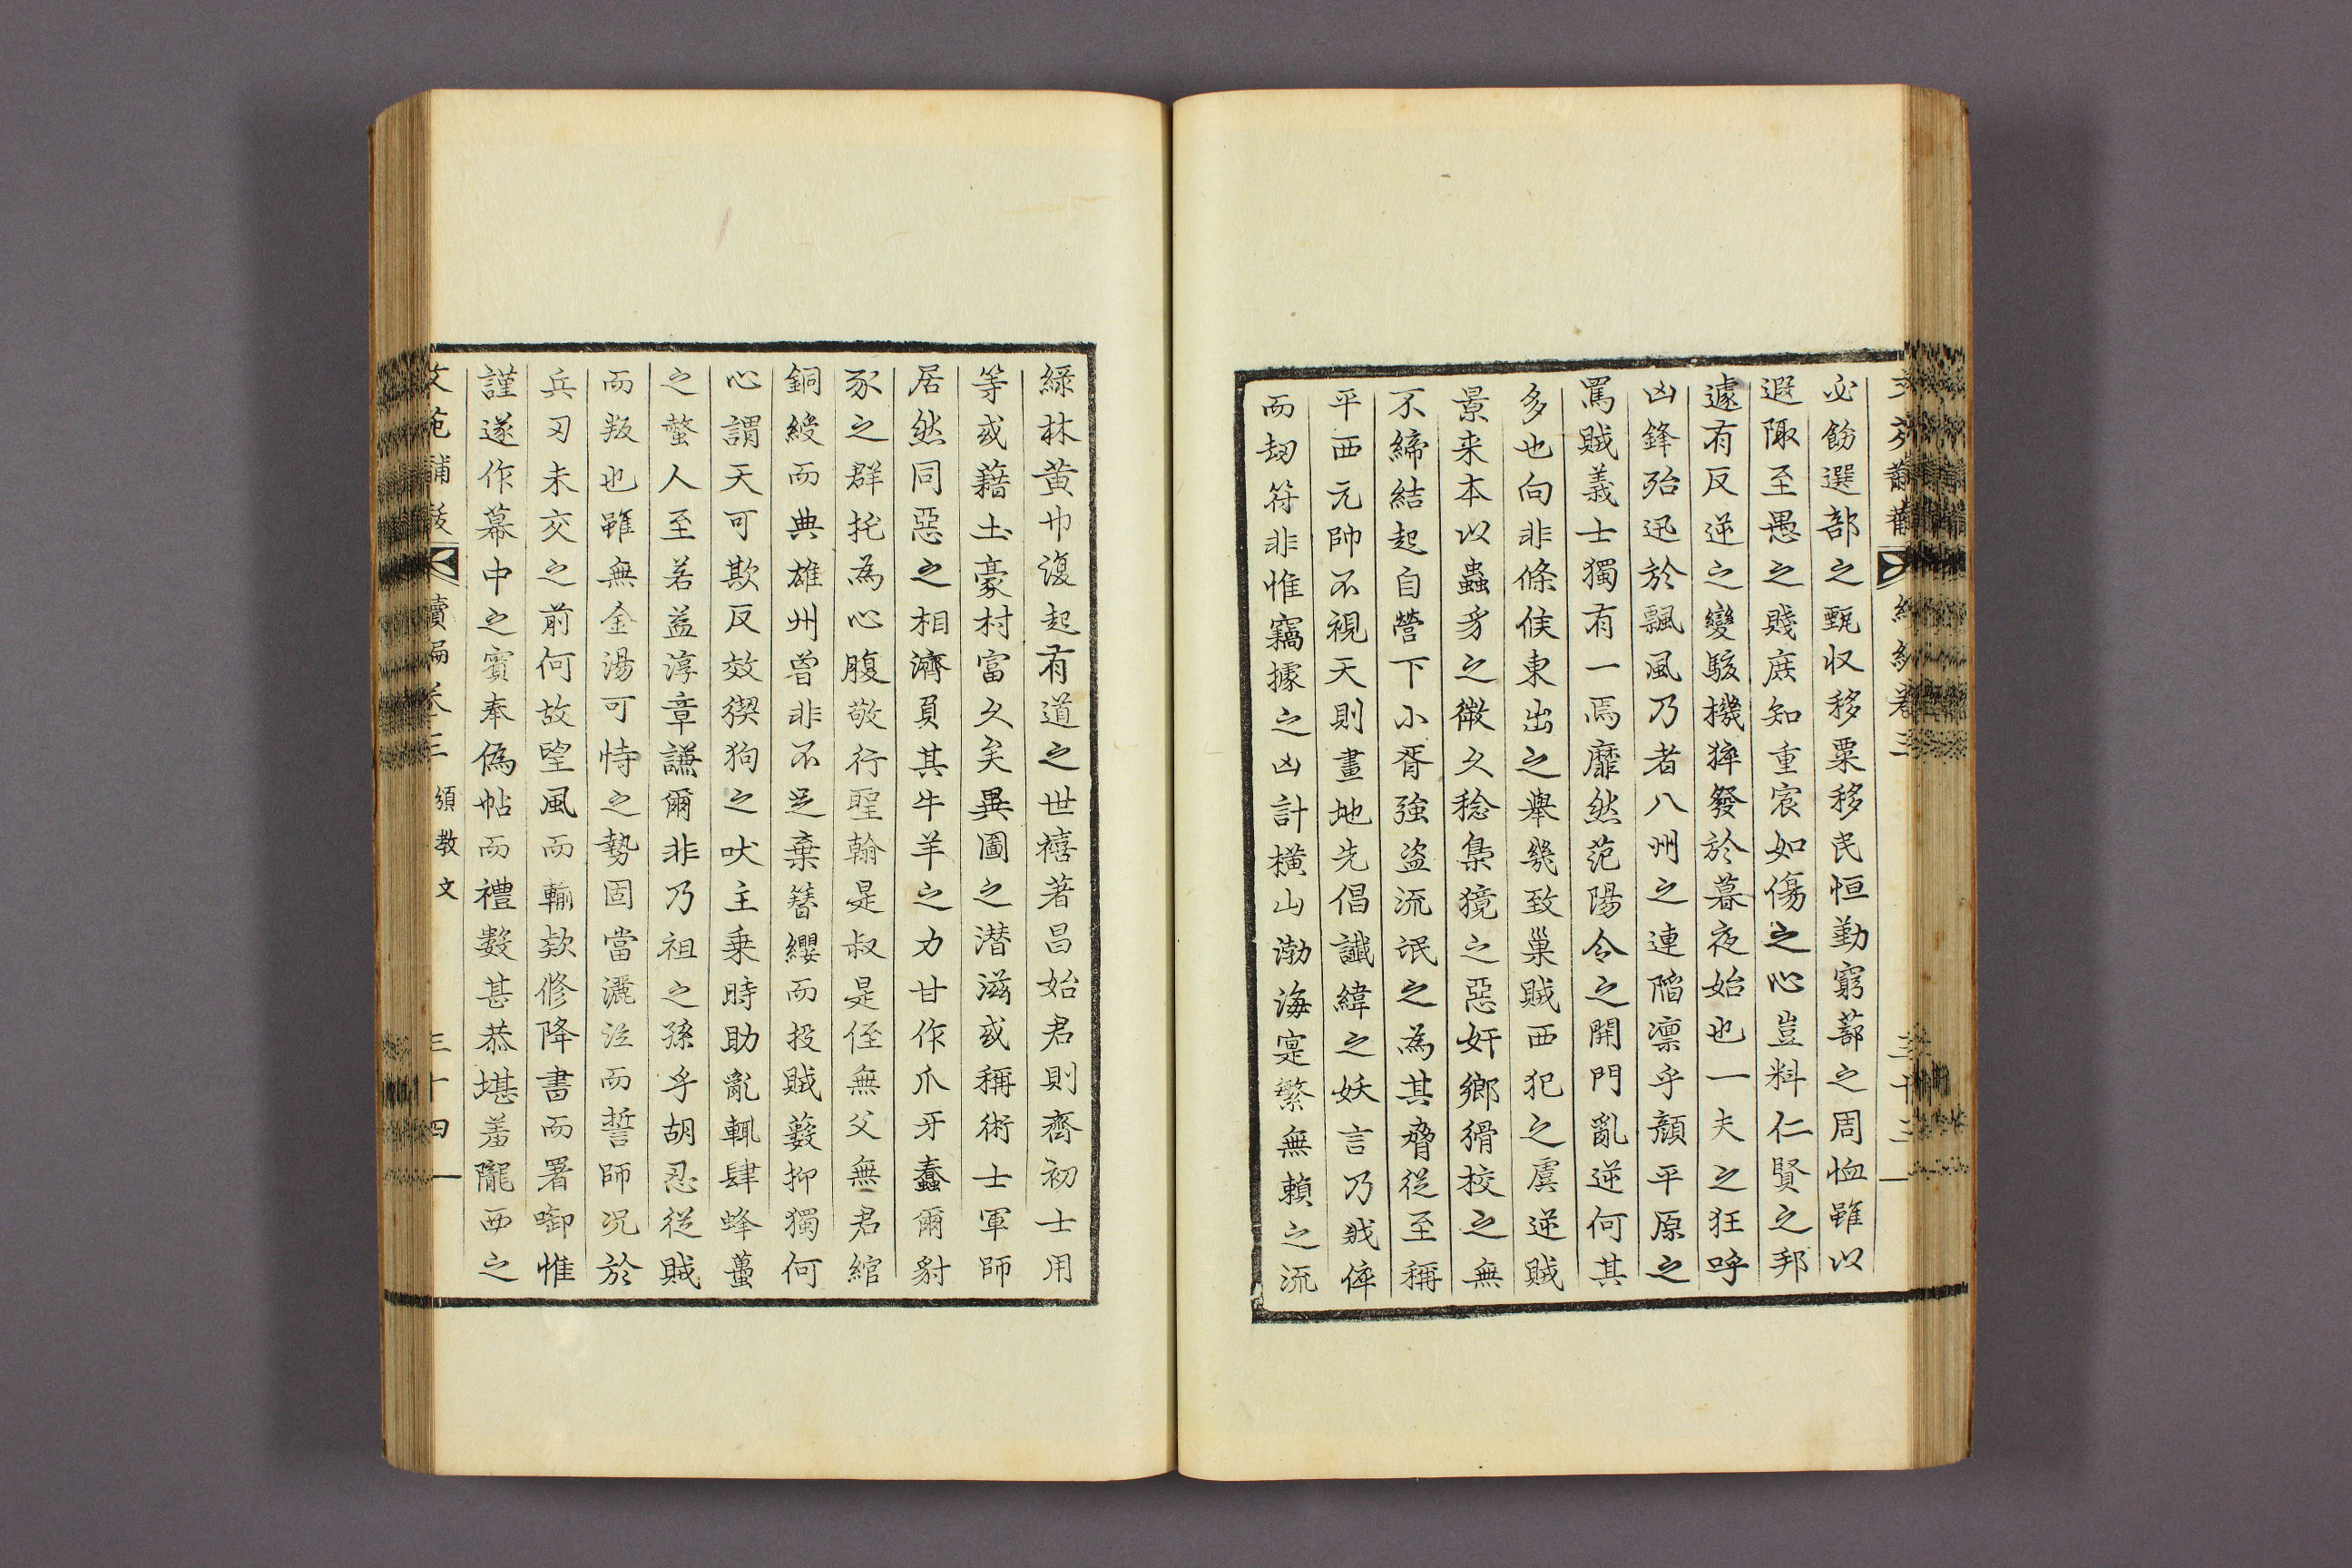 必飭選部之甄収移粟移民恒勤窮蔀之周恤雖以
遐陬至愚之賤庶知重宸如傷之心豈料仁賢之邦
遽有反逆之變駭機猝發於暮夜始也一夫之狂呼
凶鋒殆迅於飄風乃者八州之連陷凛乎顔平原之
罵賊義士獨有一焉靡然范陽令之開門亂逆何其
多也向非條侯東出之舉幾致巢賊西犯之虞逆賊
景来本以蟲豸之微久稔梟獍之惡奸鄉猾校之無
不締結起自營下小胥強盜流氓之為其脅從至稱
平西元帥不視天則畫地先倡讖緯之妖言乃戕倅
而刼符非惟竊據之凶計橫山渤海寔繁無賴之流
綠林黄巾復起有道之世禧著昌始君則齊初士用
等或藉土豪村富久矣異圖之潜滋或稱術士軍師
居然同惡之相濟負其牛羊之力甘作爪牙蠢爾豺
豕之群托為心腹敬行聖翰是叔是侄無父無君綰
銅綬而典雄州曾非不足棄簪纓而投賊藪抑獨何
心謂天可欺反效猰狗之吠主乗時助亂輒肆蜂蠆
之螫人至若益淳章謙爾非乃祖之孫乎胡忍従賊
而叛也雖無金湯可恃之勢固當灑泣而誓師况於
兵刃未交之前何故望風而輸欵修降書而署啣惟
謹遂作幕中之賓奉僞帖而禮數甚恭堪羞隴西之
文苑黼黻 續編卷三 頒教文 三十四